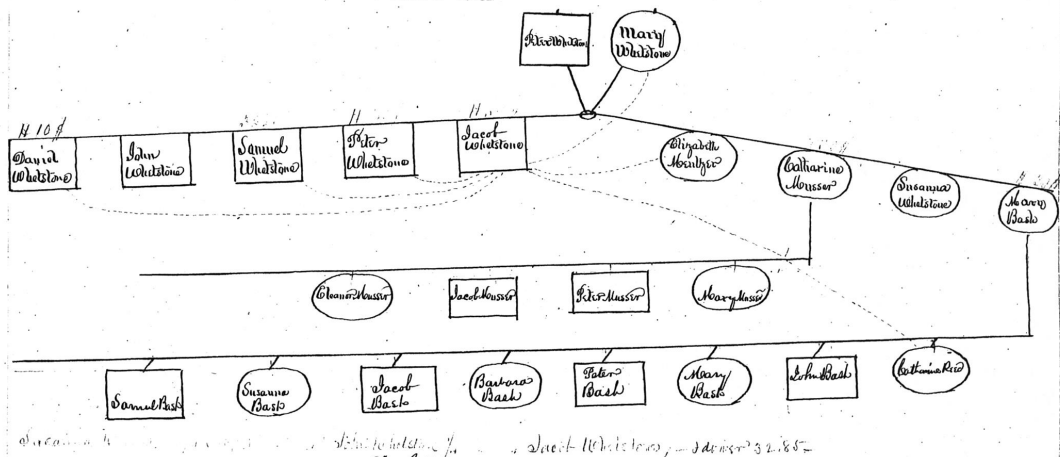 Peter Whetstone
Mary
Whetstone
H 10 $
H
H
Daniel
Whetstone
John
Whetstone
Samuel
Whetstone
Peter
Whetstone
Jacob
Whetstone
Elizabeth
Mentzer
Catharine
Musser
Susanna
Whetstone
Mary
Bash
Eleanor Musser
Jacob Musser
Peter Musser
Mary Musser
Samuel Bash
Susanna
Bash
Jacob
Bash
Barbara
Bash
Peter
Bash
Mary
Bash
John Bash
Catharine Reid
Susanna Jacob Whetstone, 32.85